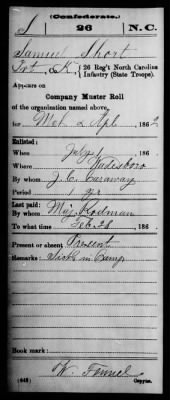 (Confederate.)
S 26 N.C.
Samuel Short
Pvt K 26 Reg't North Carolina
Infantry (State Troops)
Appears on
Company Muster Roll
of the organization named above,
for Mch & Apl, 1862
Enlisted:
When July 1, 186
Where Wadesboro
By whom J. C. Caraway
Period 1 yr
Last paid:
By whom Maj. Rodman
To what time Feb. 28, 186
Present or absent Present
Remarks: Sick in Camp
Book mark:
W. Fennel
(642) Copyist.